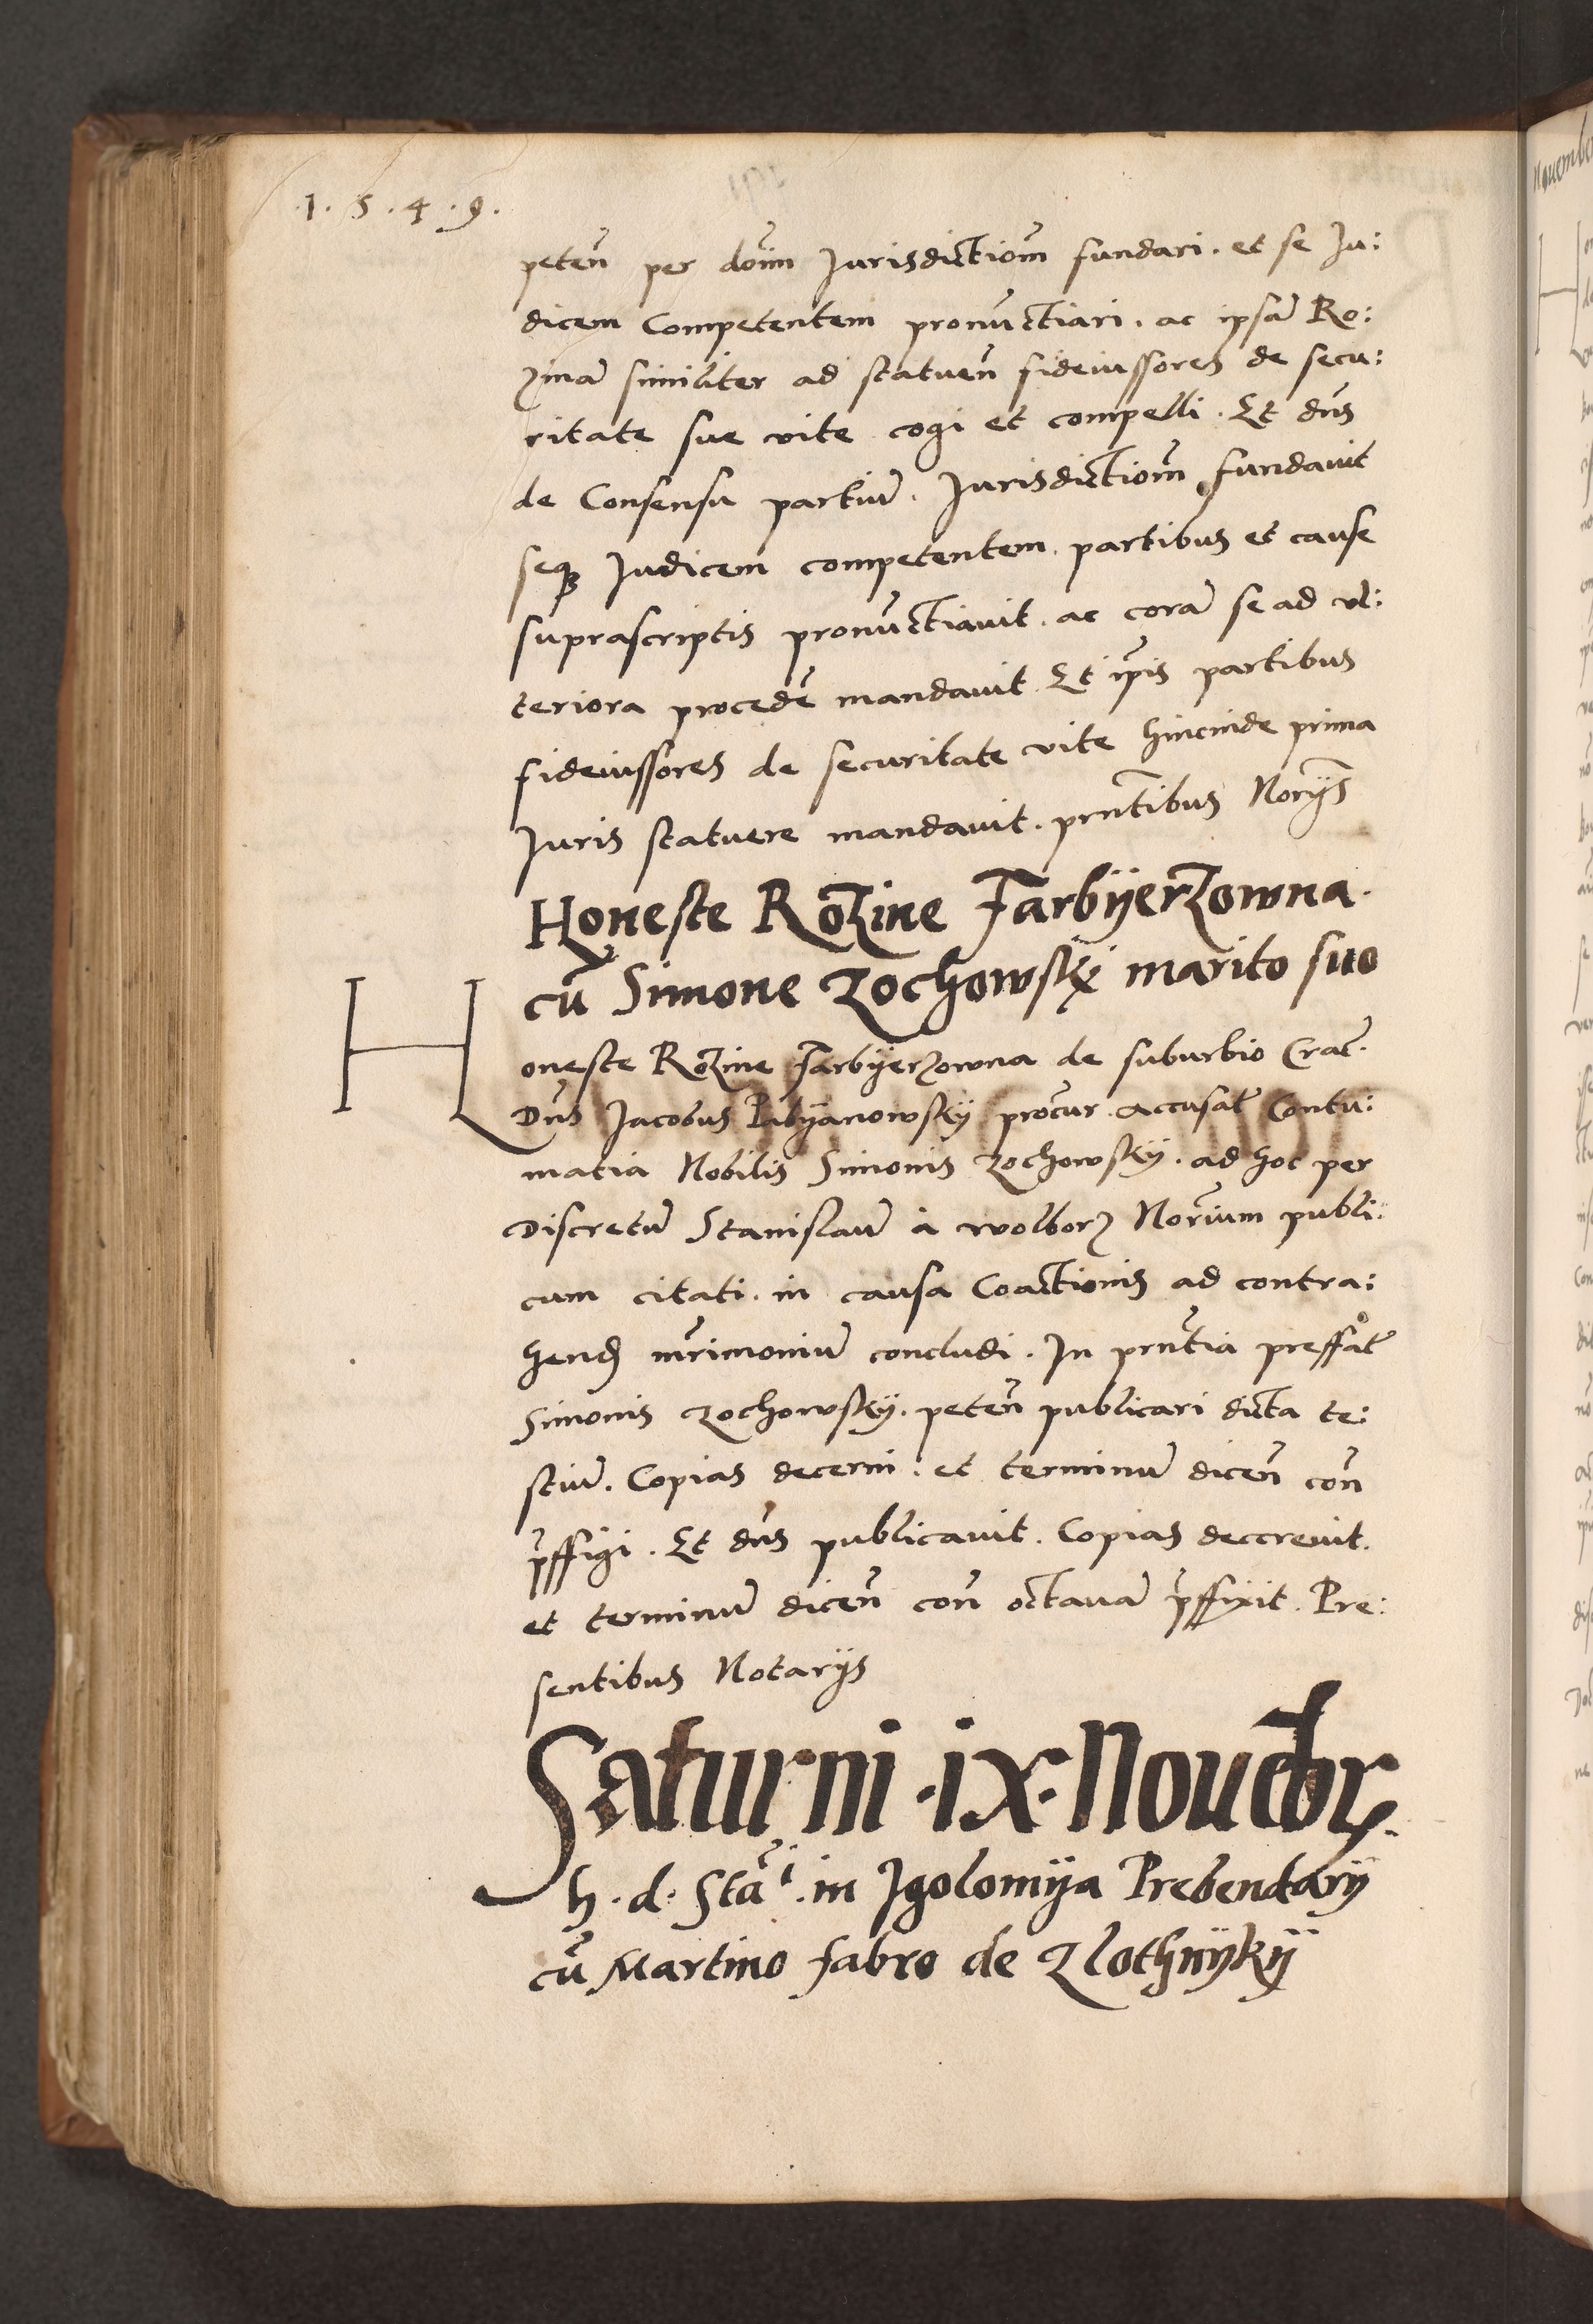 .1.5.4.9.
peten̄ per dom̄ Jurisdictiom̄ fundari. et se Ju:
dicem Competentem pronūctiari. ac ipsā Ro:
zinā similiter ad statuen̄ fideiussores de secu:
ritate sue vite cogi et compelli. Et dn̄s
de Consensu partiū. Jurisdictiom̄ fundauit
seqꝫ Judicem competentem partibus et cause
suprascriptis pronūctiauit. ac corā se ad vl:
teriora procedē mandauit Et ip̄is partibus
fideiussores de securitate vite hincinde prima
Juris statuere mandauit. pn̄tibus Nōrijs
Honeste Rozine Farbijerzowna.
cū Simone Zochowskij marito suo
Honeste Rozine Farbijerzowna de suburbio Crac̄.
Dn̄s Jacobus Pabijanowskij procur. accusat̄ Contu:
matia Nobilis Simonis Zochowskij. ad hoc per
Discretū Stanislaū à wolborz Nōrium publi:
cum citati. in causa Coactionis ad contra:
hend mr̄imoniū concludi. In pn̄tia preffat̄
Simonis Zochowskij. peten̄ publicari dicta te:
stiū. Copias decerni. et terminū dicen̄ con̄
p̄ffigi. Et dn̄s publicauit. Copias decreuit.
et terminū dicen̄ con̄ octauā p̄ffixit. Pre:
sentibus Notarijs
Saturni .ix. Nouēbr.
h. d. Stā. in Jgolomija Prebendarij
cū Martino fabro de Zlothnijkij